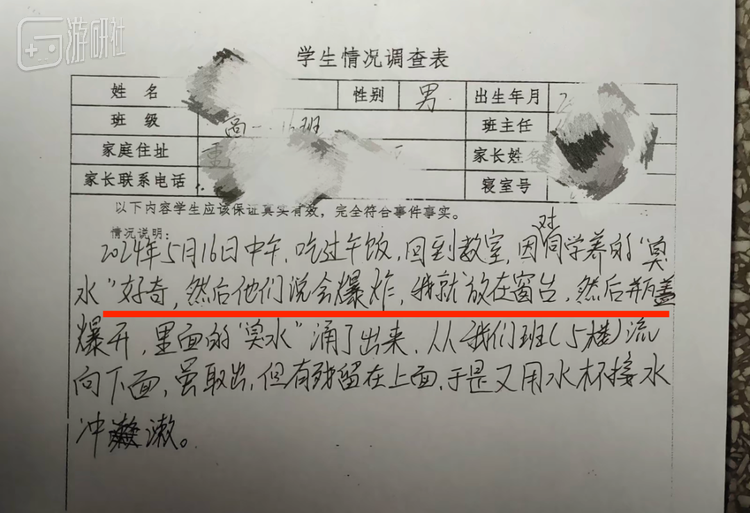 游研社
学生情况调查表
姓名 性别 男 出生年月 2
班级 高一 16班 班主任
家庭住址 家长姓名
家长联系电话 寝室号
以下内容学生应该保证真实有效，完全符合事件事实。
情况说明：
2024年5月16日中午，吃过午饭，回到教室，因对同学养的“臭
水”好奇，然后他们说会爆炸，我就放在窗台，然后瓶盖
爆开，里面的“臭水”涌了出来，从我们班（5楼）流
向下面，虽取出，但有残留在上面，于是又用水杯接水
冲漱。